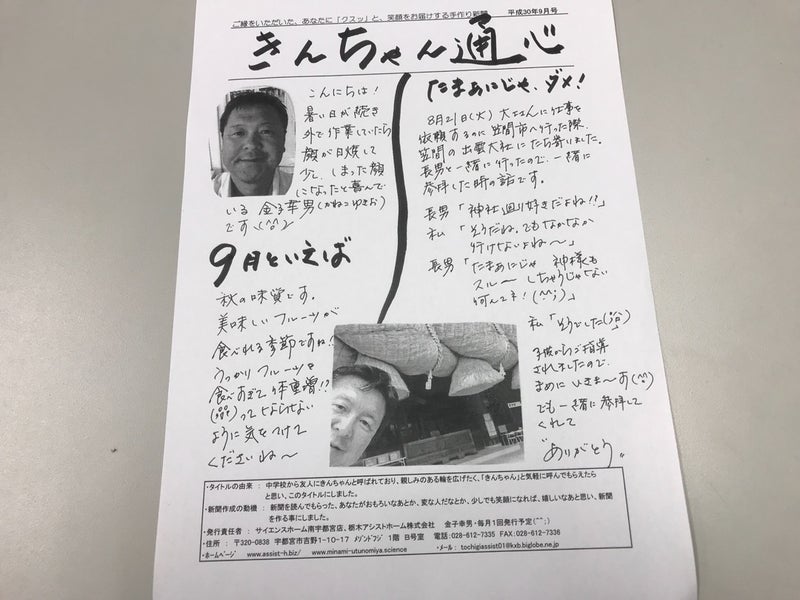 ご縁をいただいた、あなたに「クスッ」と、笑顔をお届けする手作り新聞
平成30年9月号
きんちゃん通心
こんにちは！
暑い日が続き
外で作業していたら
顔が日焼して
少し、しまった顔
になったと喜んで
いる 金子幸男(かねこゆきお)
です＼(^○^)／
9月といえば
秋の味覚です。
美味しいフルーツが
食べれる季節ですね！
うっかりフルーツを
食べすぎて体重増！？
ってならない
ように気をつけて
くださいね～
たまあにじゃ、ダメ！
8月21日(火) 大工さんに仕事を
依頼するのに笠間市へ行った際、
笠間の出雲大社にたち寄いました。
長男と一緒に行ったので、一緒に
参拝した時の話です。
長男「神社廻り好きだよね！？」
私「そうだね。でもなかなか
行けないよね～」
長男「たまあにじゃ 神様も
スル～しちゃうじゃない
何んてネ！(^^;)」
私「そうでした」
子供からご指導
されましたので、
まめに いきま～す(^^)
でも一緒に参拝して
くれて
"ありがとう"
・タイトルの由来 ： 中学校から友人にきんちゃんと呼ばれており、親しみのある輪を広げたく、「きんちゃん」と気軽に呼んでもらえたら
と思い、このタイトルにしました。
・新聞作成の動機 ： 新聞を読んでもらった、あなたがおもろいなあとか、変な人だなとか、少しでも笑顔になれば、嬉しいなあと思い、新聞
を作る事にしました。
・発行責任者 ： サイエンスホーム南宇都宮店、栃木アシストホーム株式会社 金子幸男・毎月1回発行予定(^^;)
・住所 ： 〒320-0838 宇都宮市吉野1-10-17 メゾンドフジ 1階 B号室 電話:028-612-7335 FAX:028-612-7336
・ホームページ www.assist-h.biz/ www.minami-utunomiya.science ・メール： tochigiassist01@kxb.biglobe.ne.jp